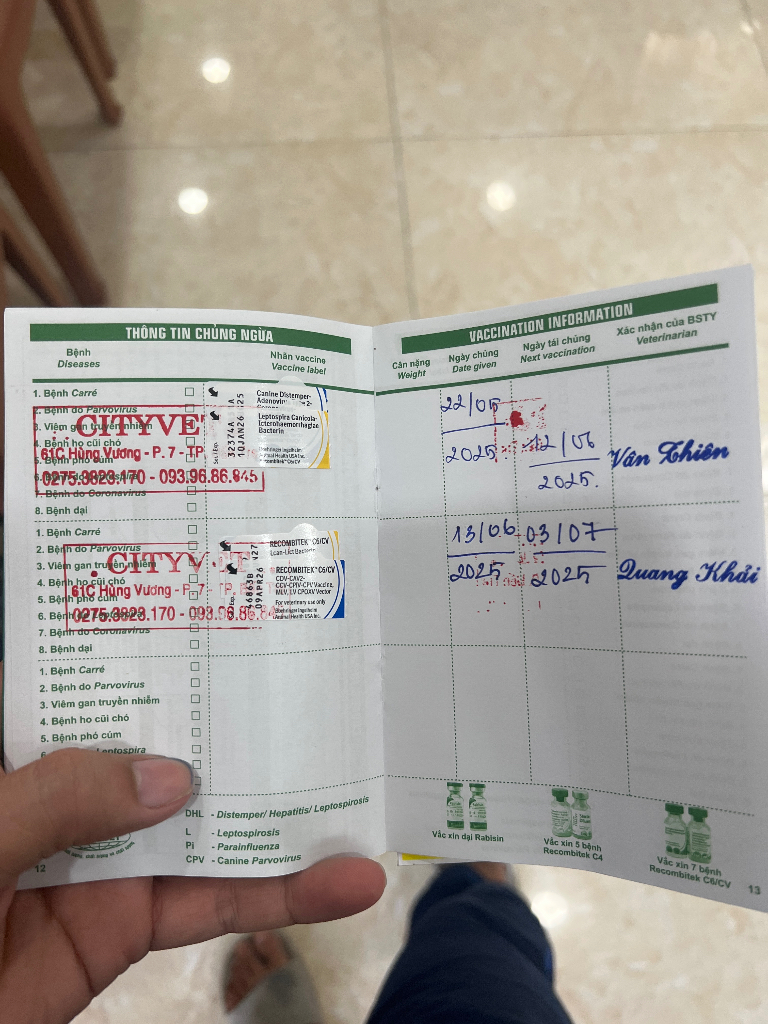 THÔNG TIN CHỦNG NGỪA
Bệnh
Diseases
Nhãn vaccine
Vaccine label
1. Bệnh Carré
2. Bệnh do Parvovirus
3. Viêm gan truyền nhiễm
4. Bệnh ho cũi chó
5. Bệnh phó cúm
7. Bệnh do Coronavirus
8. Bệnh dại
CITYVET
61C Hùng Vương - P. 7 - TP
0275.3823.170 - 093.96.86.845
Canine Distemper-
Adenovirus Type 2-
Leptospira Canicola-
Icterohaemorrhagiae
Bacterin
Boehringer Ingelheim
Animal Health USA Inc.
Recombitek® C6/CV
Ser./Exp.
32374A
10JAN26
1. Bệnh Carré
2. Bệnh do Parvovirus
3. Viêm gan truyền nhiễm
4. Bệnh ho cũi chó
5. Bệnh phó cúm
7. Bệnh do Coronavirus
8. Bệnh dại
CITYVET
61C Hùng Vương - P. 7 - TP.
0275.3823.170 - 093.96.86.84
RECOMBITEK® C6/CV
RECOMBITEK® C6/CV
CDV-CAV2-
CCV-CPIV-CPV Vaccine,
MLV, LV CPOXV Vector
For veterinary use only
Boehringer Ingelheim
Animal Health USA Inc.
09APR26
1. Bệnh Carré
2. Bệnh do Parvovirus
3. Viêm gan truyền nhiễm
4. Bệnh ho cũi chó
5. Bệnh phó cúm
Leptospira
DHL - Distemper/ Hepatitis/ Leptospirosis
L - Leptospirosis
Pi - Parainfluenza
CPV - Canine Parvovirus
12
VACCINATION INFORMATION
Cân nặng
Weight
Ngày chủng
Date given
Ngày tái chủng
Next vaccination
Xác nhận của BSTY
Veterinarian
22/05
2025
12/06
2025.
Văn Thiên
13/06
2025
03/07
2025
Quang Khải
Vắc xin dại Rabisin
Vắc xin 5 bệnh
Recombitek C4
Vắc xin 7 bệnh
Recombitek C6/CV
13